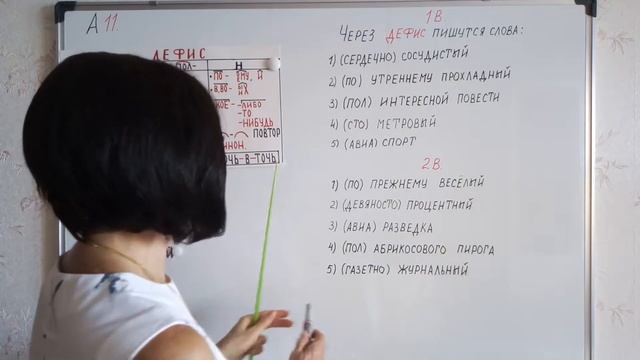 А 11.
ДЕФИС
ПОЛ- Н
• ПО- -ОМУ, -И
• В, ВО- -ЫХ
-ИХ
КОЕ- -ЛИБО
-ТО
-НИБУДЬ
ПОВТОР
ТОЧЬ-В-ТОЧЬ
1 В.
ЧЕРЕЗ ДЕФИС ПИШУТСЯ СЛОВА:
1) (СЕРДЕЧНО) СОСУДИСТЫЙ
2) (ПО) УТРЕННЕМУ ПРОХЛАДНЫЙ
3) (ПОЛ) ИНТЕРЕСНОЙ ПОВЕСТИ
4) (СТО) МЕТРОВЫЙ
5) (АВИА) СПОРТ
2 В.
1) (ПО) ПРЕЖНЕМУ ВЕСЁЛЫЙ
2) (ДЕВЯНОСТО) ПРОЦЕНТНЫЙ
3) (АВИА) РАЗВЕДКА
4) (ПОЛ) АБРИКОСОВОГО ПИРОГА
5) (ГАЗЕТНО) ЖУРНАЛЬНЫЙ